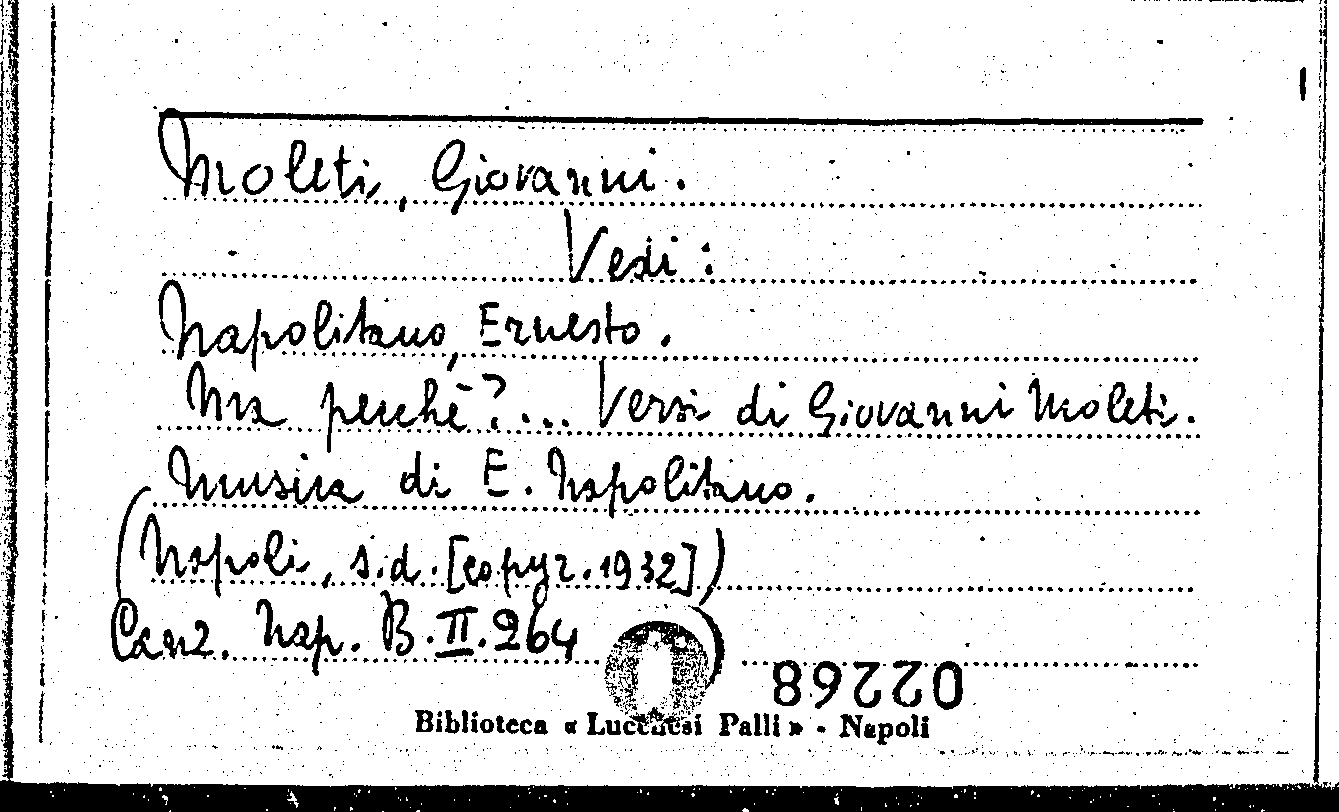 Moleti, Giovanni.
Vedi:
Napolitano, Ernesto.
Ma perchè?... Versi di Giovanni Moleti.
Musica di E. Napolitano.
(Napoli, s.d. [copyr. 1932])
Canz. Nap. B.II.264
02268
Biblioteca « Lucchesi Palli » - Napoli